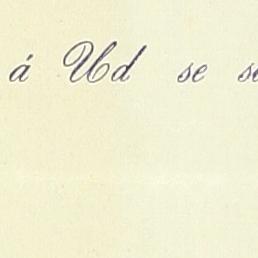 á Ud se se